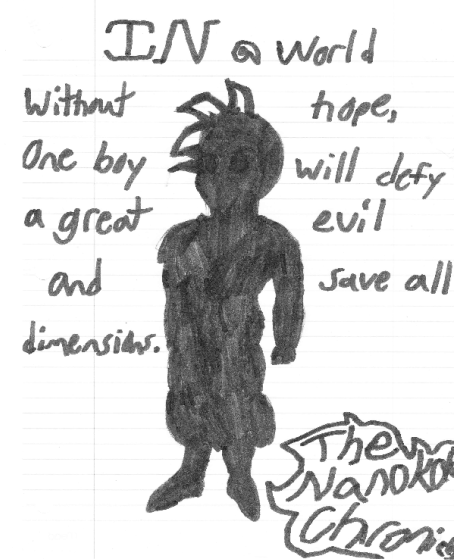 IN a World
Without hope,
One boy will defy
a great evil
and save all
dimensions.
The
Nanokok
Chronic